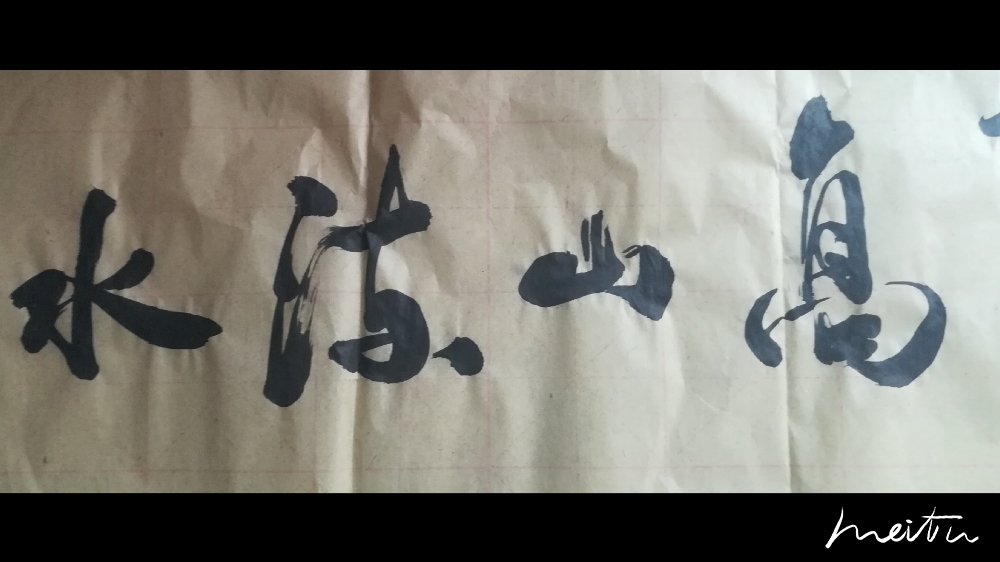 高山流水
meitu